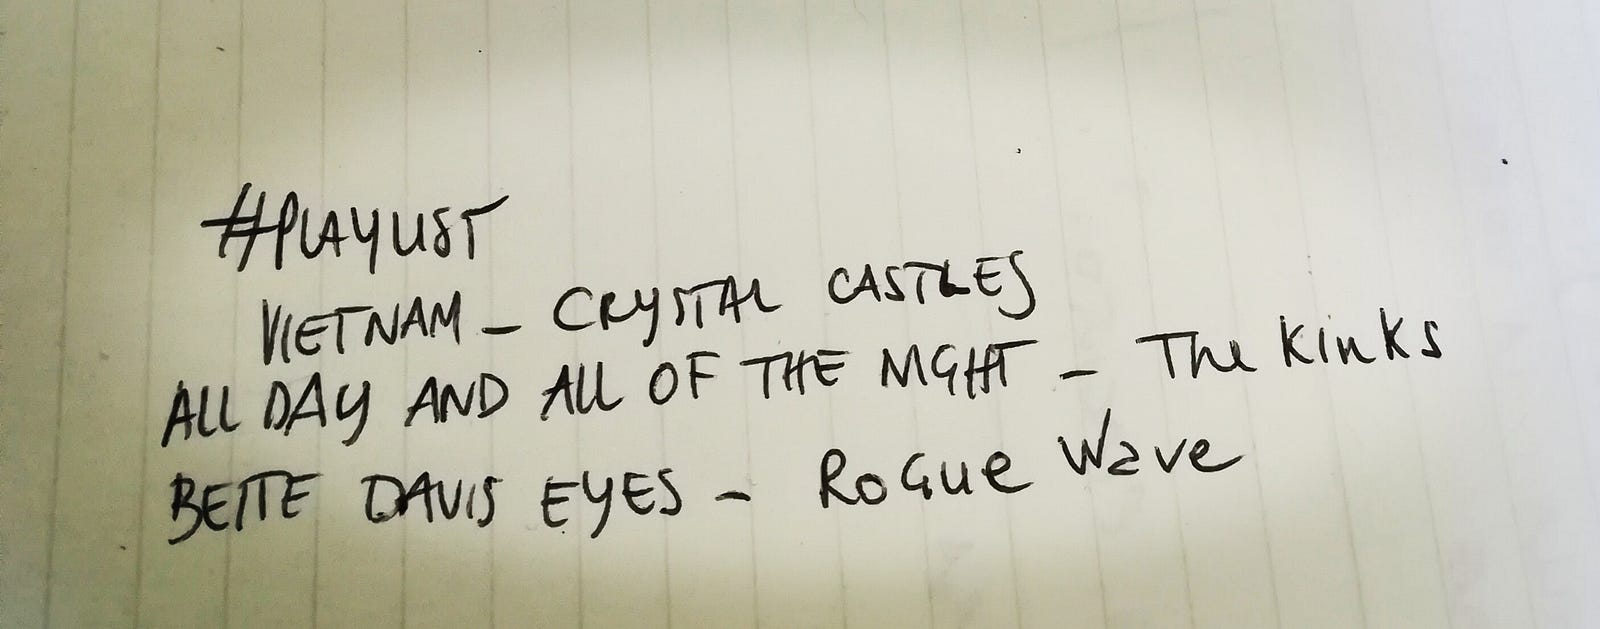 #PLAYLIST
VIETNAM - CRYSTAL CASTLES
ALL DAY AND ALL OF THE NIGHT - The Kinks
BETTE DAVIS EYES - Rogue Wave